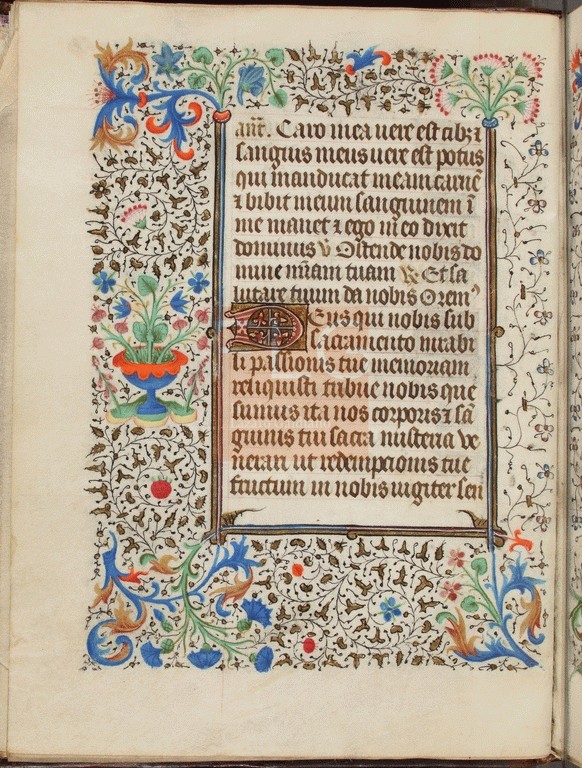 añt. Caro mea vere est cib⁹ ⁊
sanguis meus vere est potus
qui manducat meam carnē
⁊ bibit meum sanguinem ī
me manet ⁊ ego in eo dixit
dominus v̄ Ostende nobis do
mine m̄iam tuam ℟ Et sa
lutare tuum da nobis Orem⁹
Deus qui nobis sub
sacramento mirabi
li passionis tue memoriam
reliquisti tribue nobis que
sumus ita nos corporis ⁊ sā
guinis tui sacra misteria ve
nerari ut redempcionis tue
fructum in nobis iugiter sen